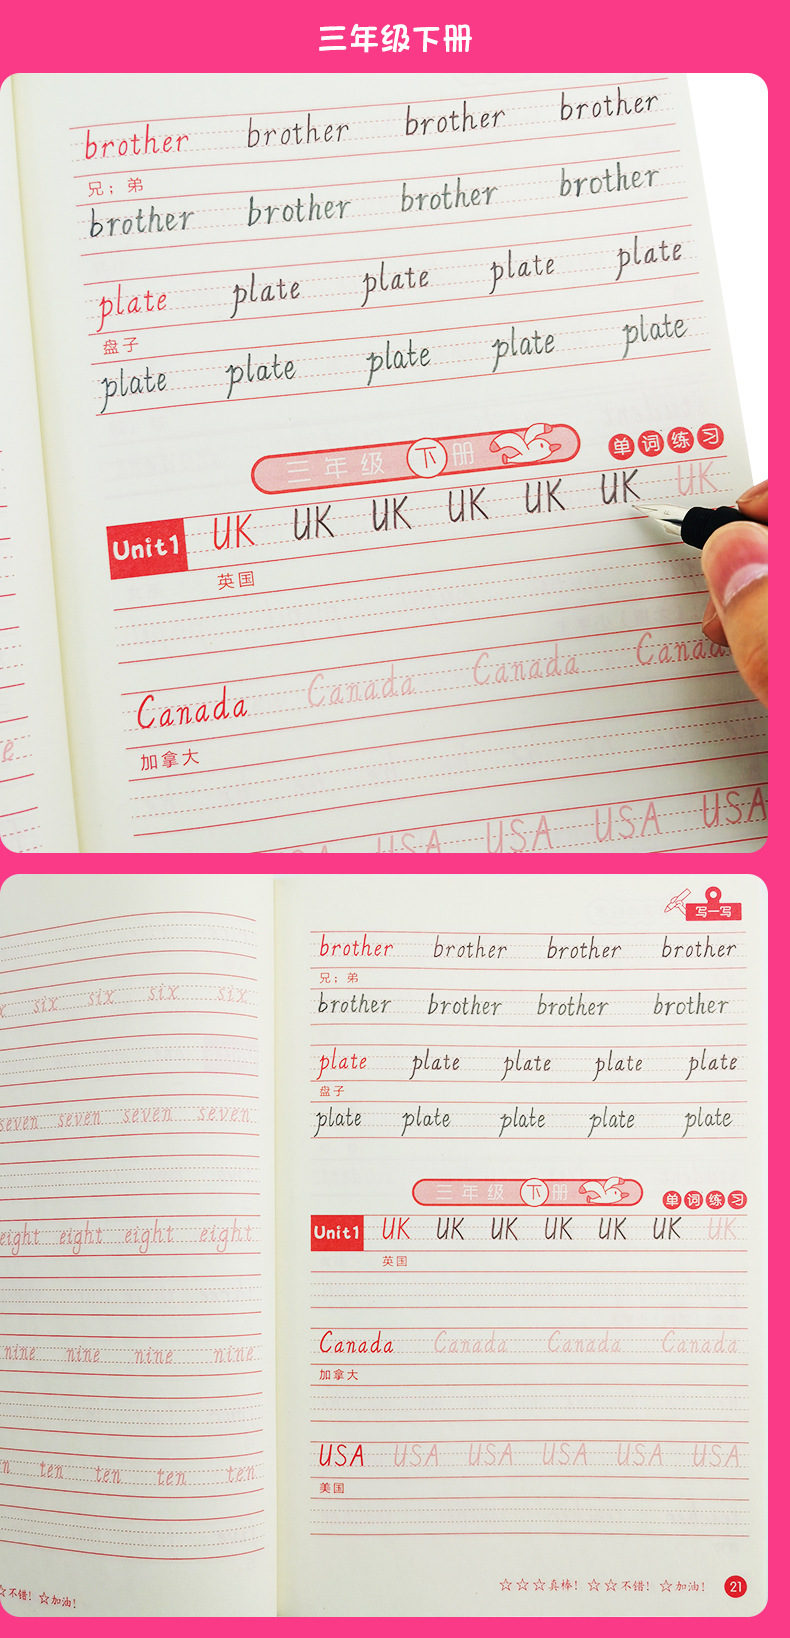 三年级下册
brother brother brother brother
兄；弟
brother brother brother brother
plate plate plate plate plate
盘子
plate plate plate plate plate
三年级下册
单词练习
Unit1 UK UK UK UK UK UK UK
英国
Canada Canada Canada Canada
加拿大
USA USA USA USA
写一写
brother brother brother brother
兄；弟
brother brother brother brother
plate plate plate plate plate
盘子
plate plate plate plate plate
三年级下册
单词练习
Unit1 UK UK UK UK UK UK UK
英国
Canada Canada Canada Canada
加拿大
USA USA USA USA USA USA
美国
☆☆☆真棒！ ☆☆不错！ ☆加油！ 21
six six six six
seven seven seven seven
eight eight eight eight
nine nine nine nine
ten ten ten ten
☆不错！ ☆加油！